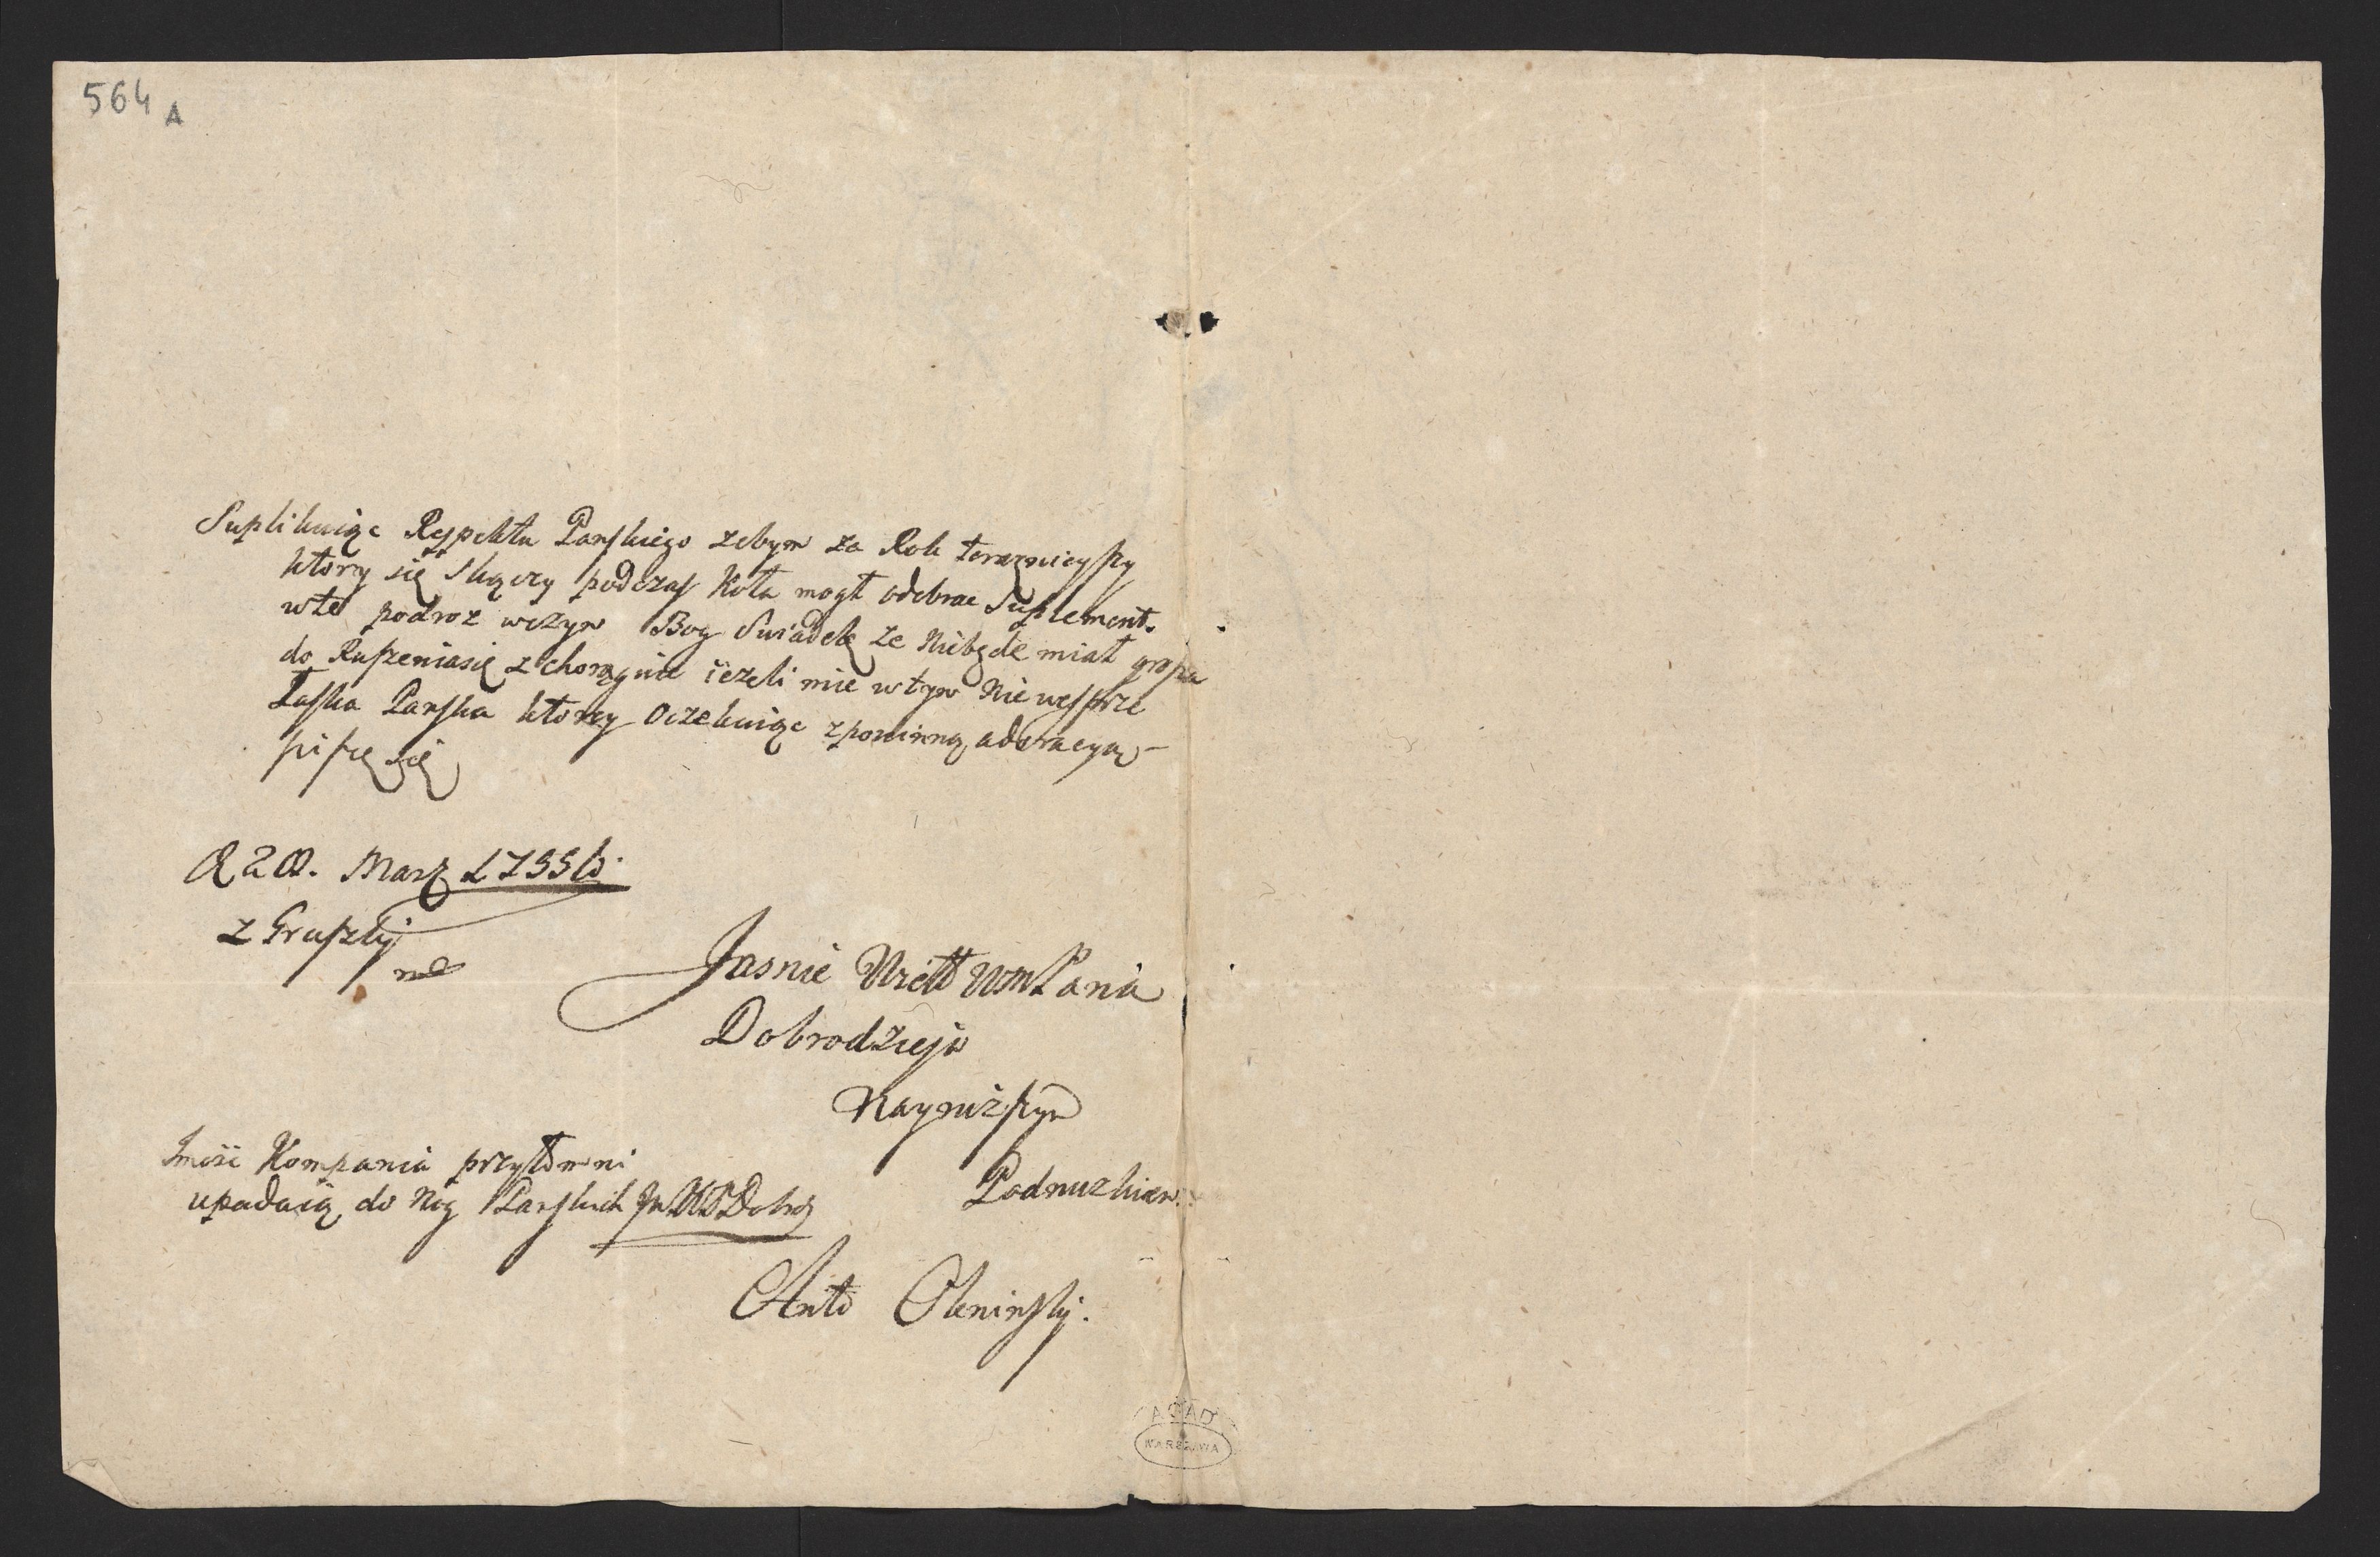 564 A
Suplikuiąc Respektu Panskiego zebym za Rok terazniejszy
ktory się skączy podczas Koła mogł odebrac Suplement.
w te podroz wczym Bog Swiadek ze Niebęde miał grosza
do Ruszeniasię z chorągnie iezeli mie w tym Nie wesprze
Łaska Panska ktorey Oczekuiąc zpowinną adoracyą
piszę się
20. Marz 1755
z Gruszki
Jasnie Wiel WM Pana
Dobrodzieja
Nayniszym
Podnuzkiem
Imość Kompania przytomni
upadaią do Nog Panskich JW WM P Dobro
Anto Oleninsky.
AGAD
WARSZAWA